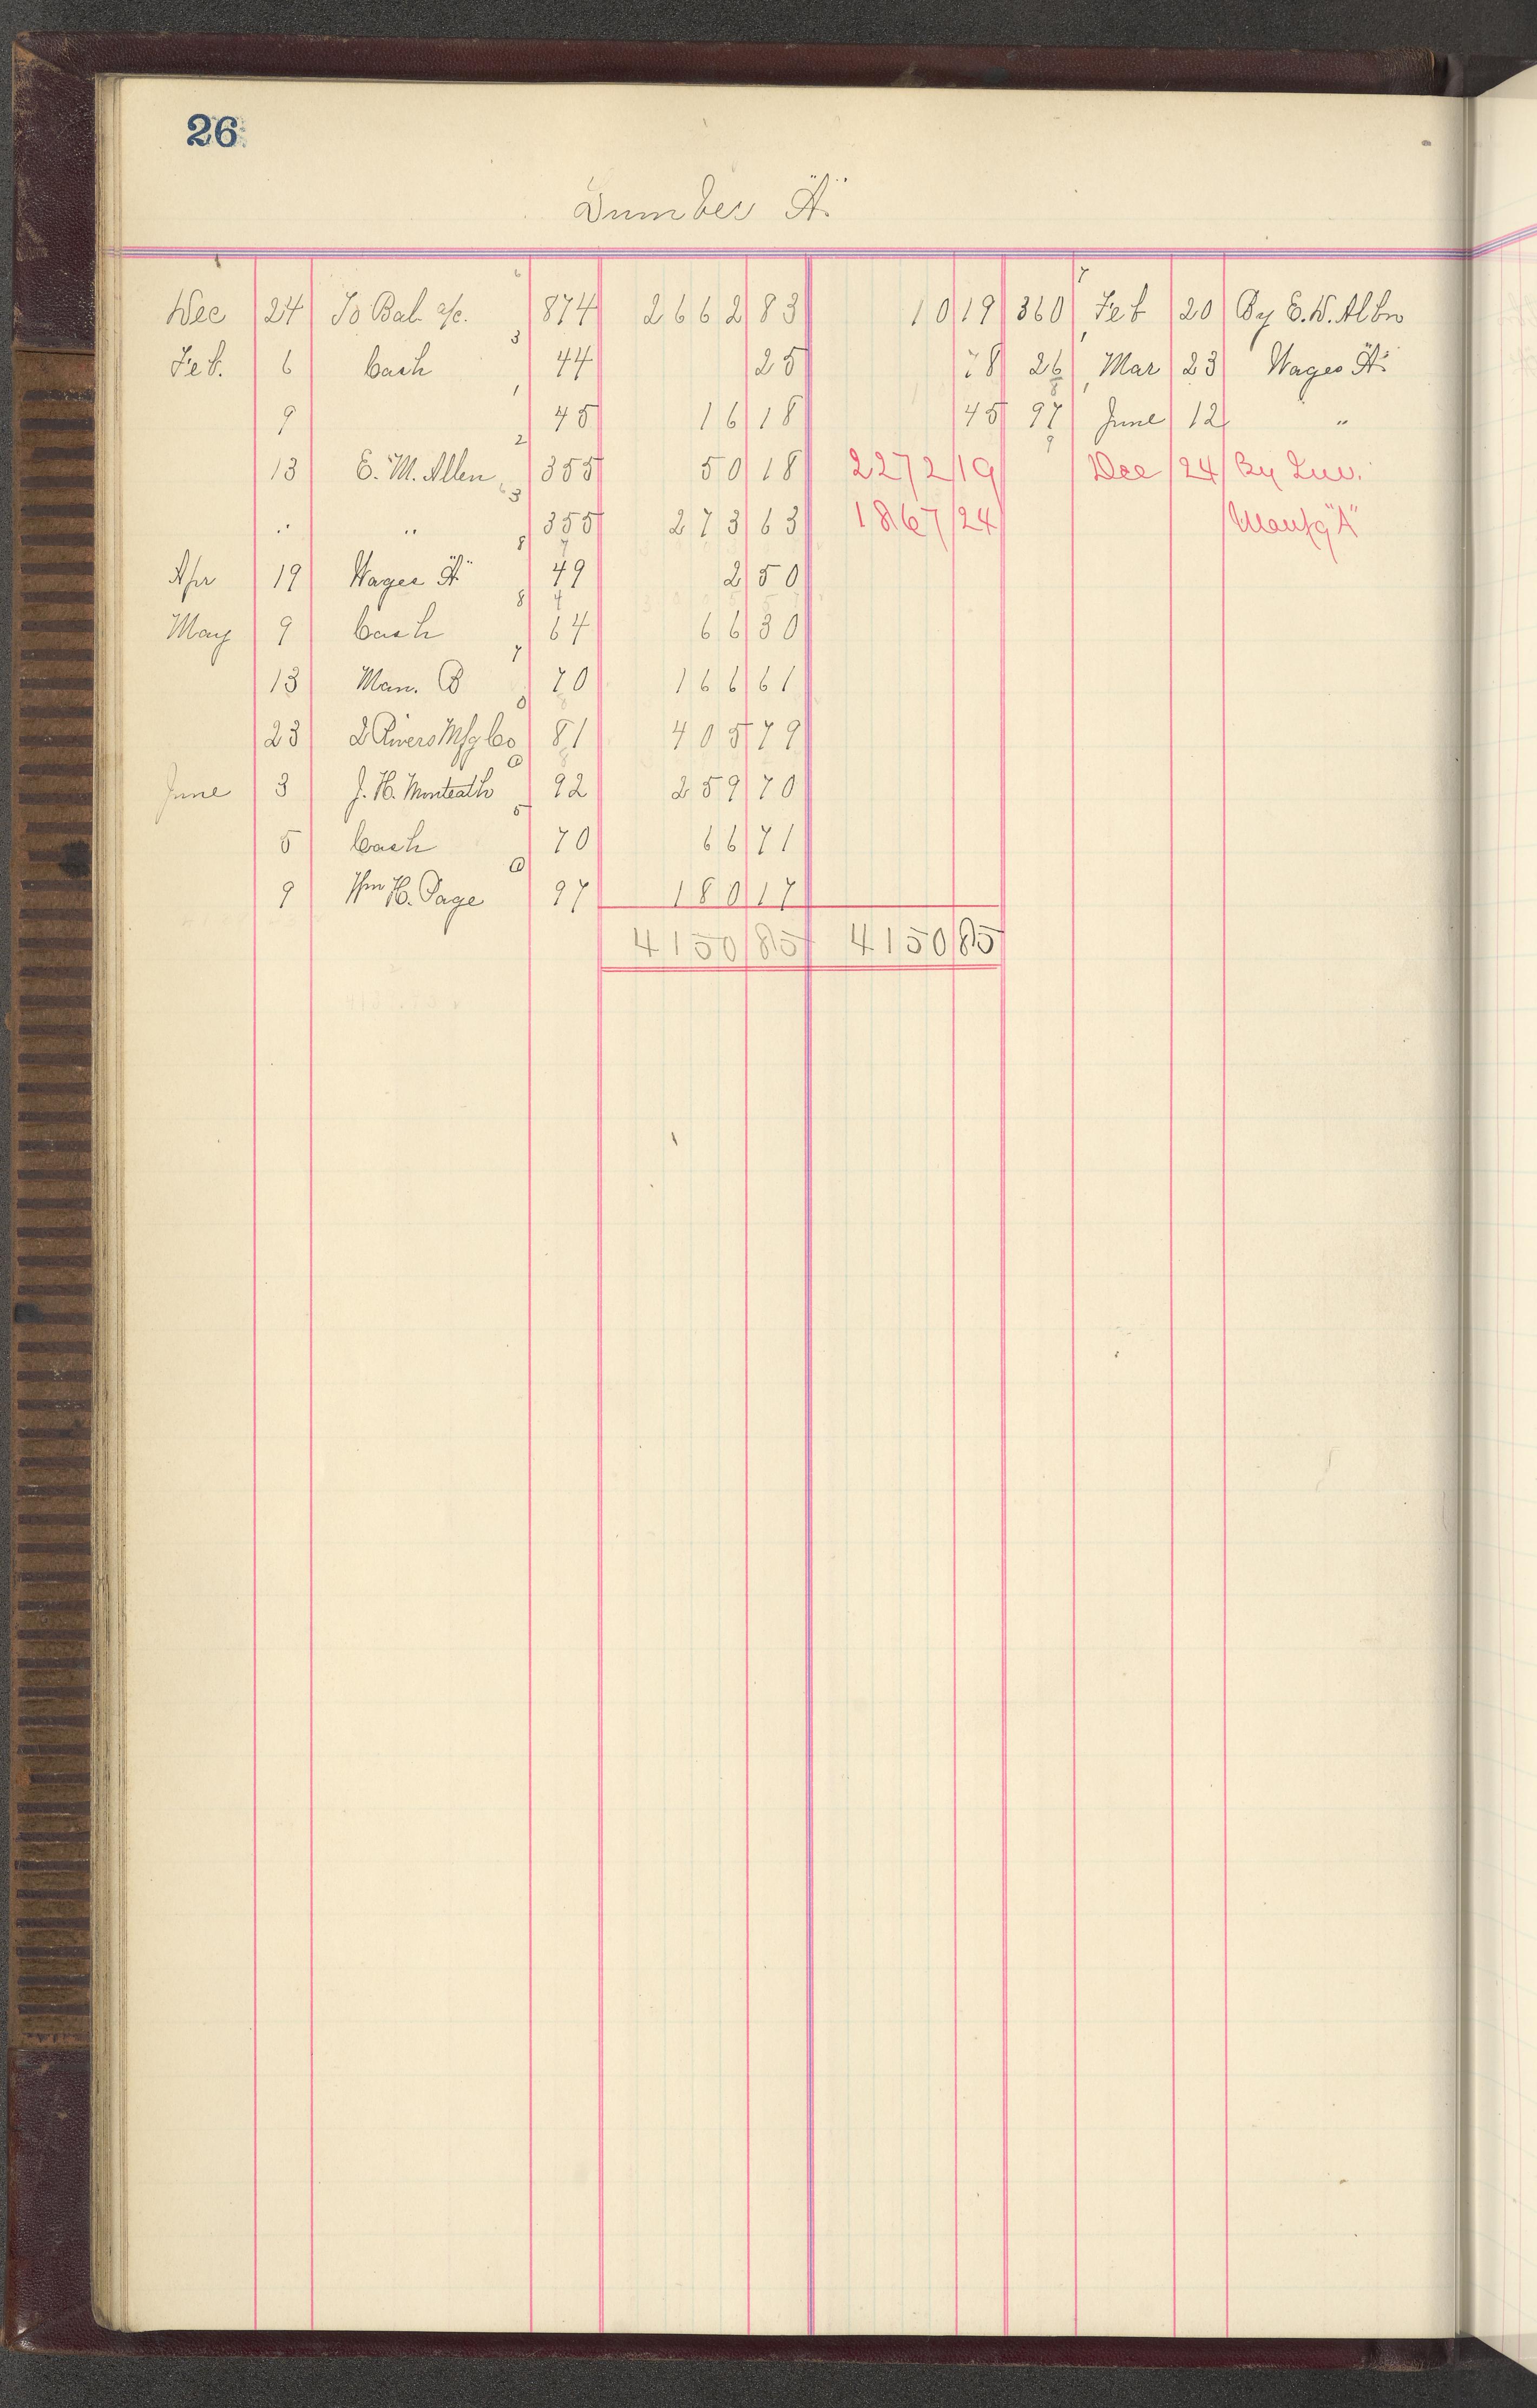 26
Lumber "A"
Dec 24 To Bal. a/c. 874 2662 83 10 19 360 Feb 20 By E. W. Allen
Feb. 6 Cash 44 25 78 26 Mar 23 Wages "A"
9 45 16 18 45 97 June 12 "
13 E. M. Allen 355 50 18 2272 19 Dec 24 By Inv.
" " 355 273 63 1867 24 Manfg "A"
Apr 19 Wages "A" 49 2 50
May 9 Cash 64 66 30
13 Man. B 70 166 61
23 2 Rivers Mfg Co 81 405 79
June 3 J. H. Monteath 92 259 70
5 Cash 70 66 71
9 Wm H. Page 97 180 17
4150 85 4150 85